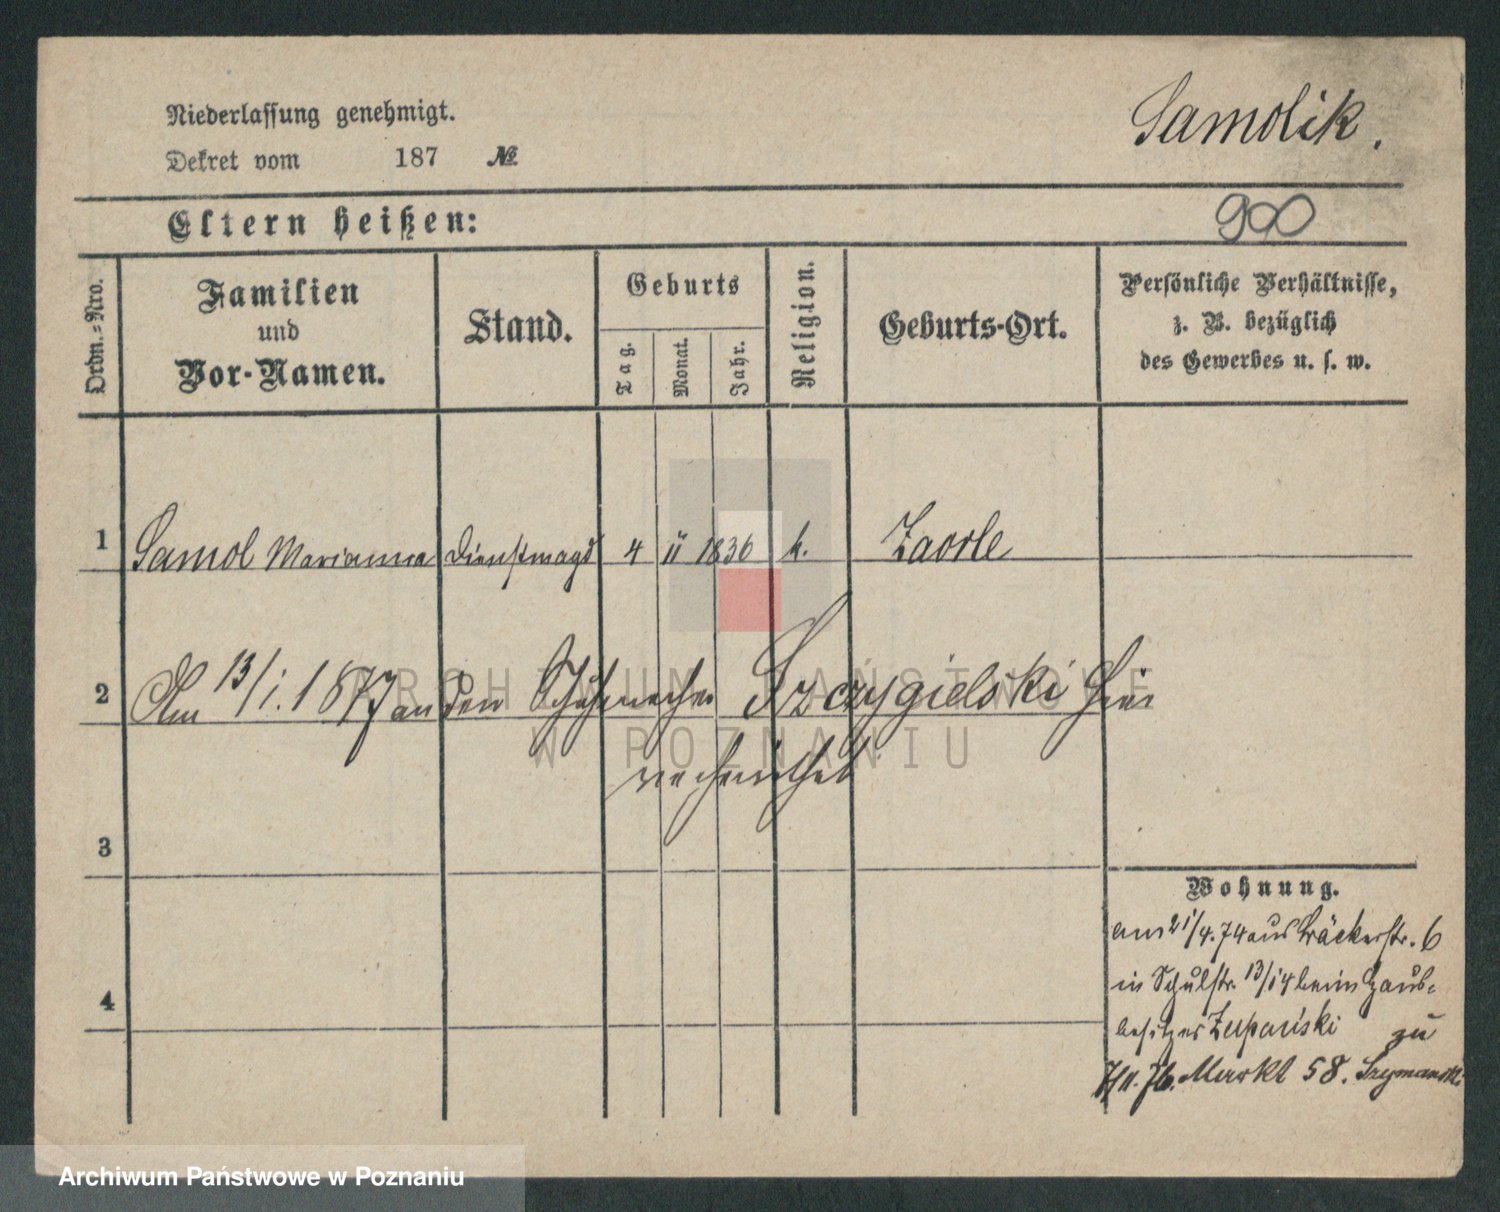 Niederlassung genehmigt.
Samolik.
Dekret vom 187 No.
Eltern heißen:
Ordn.-Nro.
Familien
und
Vor-Namen.
Stand.
Geburts
Tag.
Monat.
Jahr.
Religion.
Geburts-Ort.
Persönliche Verhältnisse,
z. B. bezüglich
des Gewerbes u. s. w.
1 Samol Marianna Dienstmagd 4 II 1836 k. Zaorle
2 Am 13/1. 1877 an den Schuhmacher Szczygielski hier
verheirathet
3
Wohnung.
am 21/4. 74 aus Bäckerstr. 6
in Schulstr. 13/14 beim Haus-
4
besitzer Zupański zu
7/11. 76. Markt 58. Szymanski
ARCHIWUM PAŃSTWOWE
W POZNANIU
Archiwum Państwowe w Poznaniu